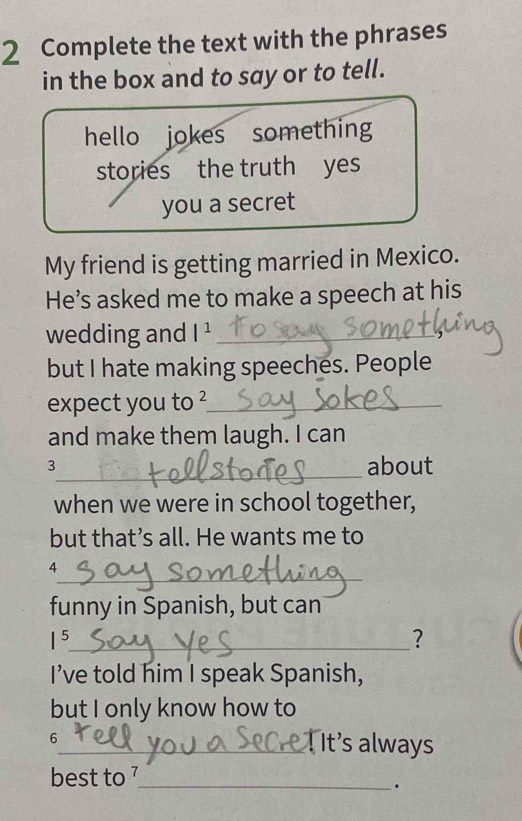 2 Complete the text with the phrases
in the box and to say or to tell.
hello jokes something
stories the truth yes
you a secret
My friend is getting married in Mexico.
He's asked me to make a speech at his
wedding and I 1 to say something,
but I hate making speeches. People
expect you to 2 say jokes
and make them laugh. I can
3 tell stories about
when we were in school together,
but that's all. He wants me to
4 say something
funny in Spanish, but can
I 5 Say yes ?
I've told him I speak Spanish,
but I only know how to
6 tell you a Secret! It's always
best to 7 .